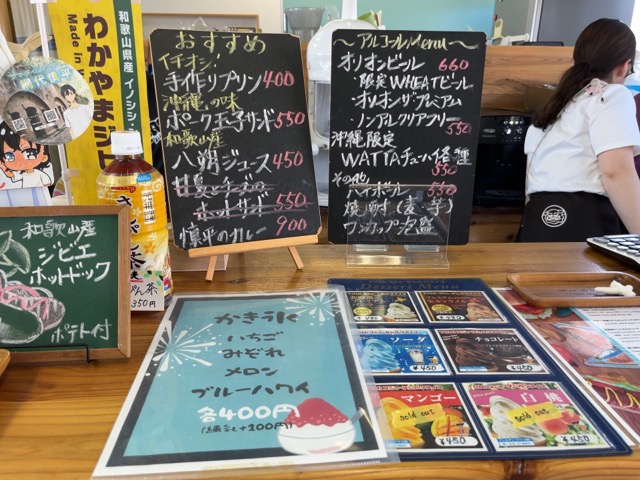 和歌山県産 イノシシ
わかやまジビ
Made in
おすすめ
イチオシ!
手作りプリン 400
沖縄の味
ポーク玉子サンド 550
和歌山産
八朔ジュース 450
ホットサンド 550
慎平のカレー 900
～アルコールMenu～
オリオンビール 660
・限定WHEATビール
・オリオンザプレミアム
・ノンアルクリアフリー
550
沖縄限定
WATTAチューハイ各種
550
その他
ハイボール 550
焼酎(麦・芋)
ワンカップ
和歌山産
ジビエ
ホットドック
ポテト付
茶
350円
かき氷
いちご
みぞれ
メロン
ブルーハワイ
各400円
(練ミルク+200円)
Dessert Menu
ソーダ
¥450
チョコレート
¥450
マンゴー
sold out
¥450
白桃
sold out
¥450